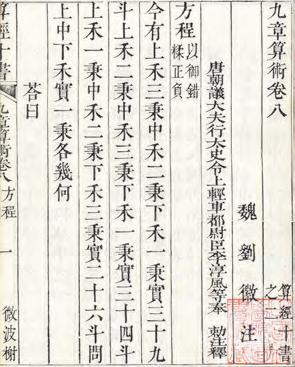 九章算術卷八
算經十書
之二
魏 劉 徽 注
唐朝議大夫行太史令上輕車都尉臣李淳風等奉 勅注釋
方程 以御錯
糅正負
今有上禾三秉中禾二秉下禾一秉實三十九
斗上禾二秉中禾三秉下禾一秉實三十四斗
上禾一秉中禾二秉下禾三秉實二十六斗問
上中下禾實一秉各幾何
荅曰
算經十書 九章算術卷八 方程 一 微波榭